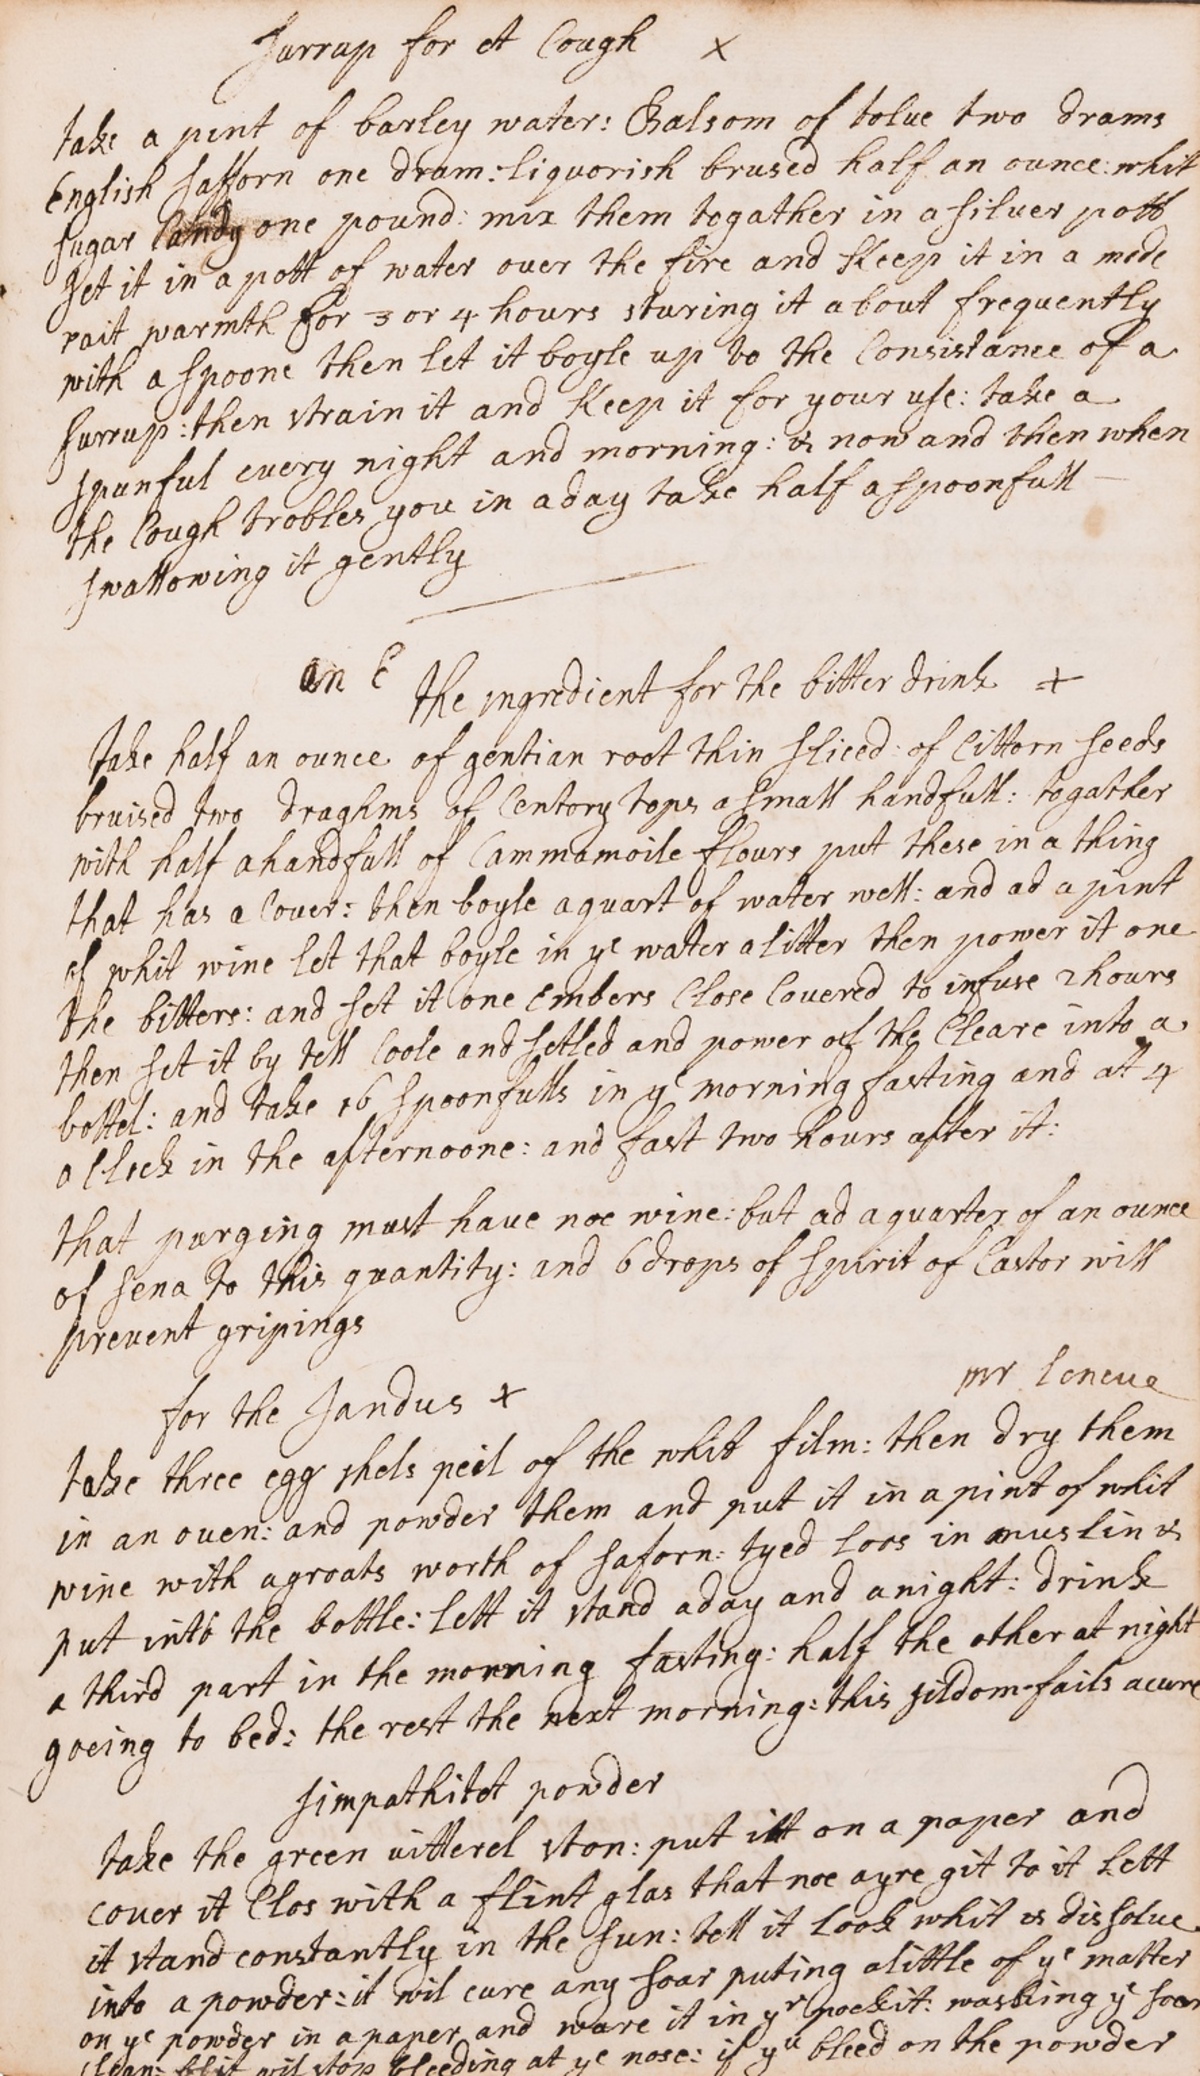 Surrup for A Cough x
take a pint of barley water: Balsom of tolue two drams
English Safforn one dram: liquorish brused half an ounce: whit
sugar Candy one pound: mix them togather in a silver pott
set it in a pott of water over the fire and Keep it in a mode
rait warmth for 3 or 4 hours sturing it about frequently
with a spoone then let it boyle up to the Consistance of a
surrup: then strain it and Keep it for your use: take a
spunful every night and morning: & now and then when
the Cough trobles you in a day take half a spoonfull
swallowing it gently
the ingredient for the bitter drink +
Take half an ounce of gentian root thin sliced: of Cittorn seeds
bruised two draghms of Centory tops a small handfull: togather
with half a handfull of Cammamoile flours put these in a thing
that has a Cover: then boyle a quart of water well: and ad a pint
of whit wine let that boyle in ye water a litter then power it one
the bitters: and set it one Embers Close Covered to infuse 2 hours
then set it by tell Coole and setled and power of the Cleare into a
bottel: and take 16 spoonfulls in ye morning fasting and at 4
a Clock in the afternoone: and fast two hours after it:
that purging must have noe wine: but ad a quarter of an ounce
of sena to this quantity: and 6 drops of spirit of Castor will
prevent gripings
for the Jandus x mr Leneve
take three egg shels peil of the whit film: then dry them
in an oven: and powder them and put it in a pint of whit
wine with a groats worth of saforn: tyed loos in muslin &
put into the bottle: lett it stand a day and a night: drink
a third part in the morning fasting: half the other at night
goeing to bed: the rest the next morning: this sildom fails a cure
simpathitct powder
take the green vitterel ston: put itt on a paper and
cover it Clos with a flint glas that noe ayre git to it Lett
it stand constantly in the sun: tell it look whit & dissolve
into a powder: it wil cure any soar puting a little of ye matter
on ye powder in a paper and ware it in yr pockit: washing ye soar
Clean: wil stop bleeding at ye nose: if yu bleed on the powder